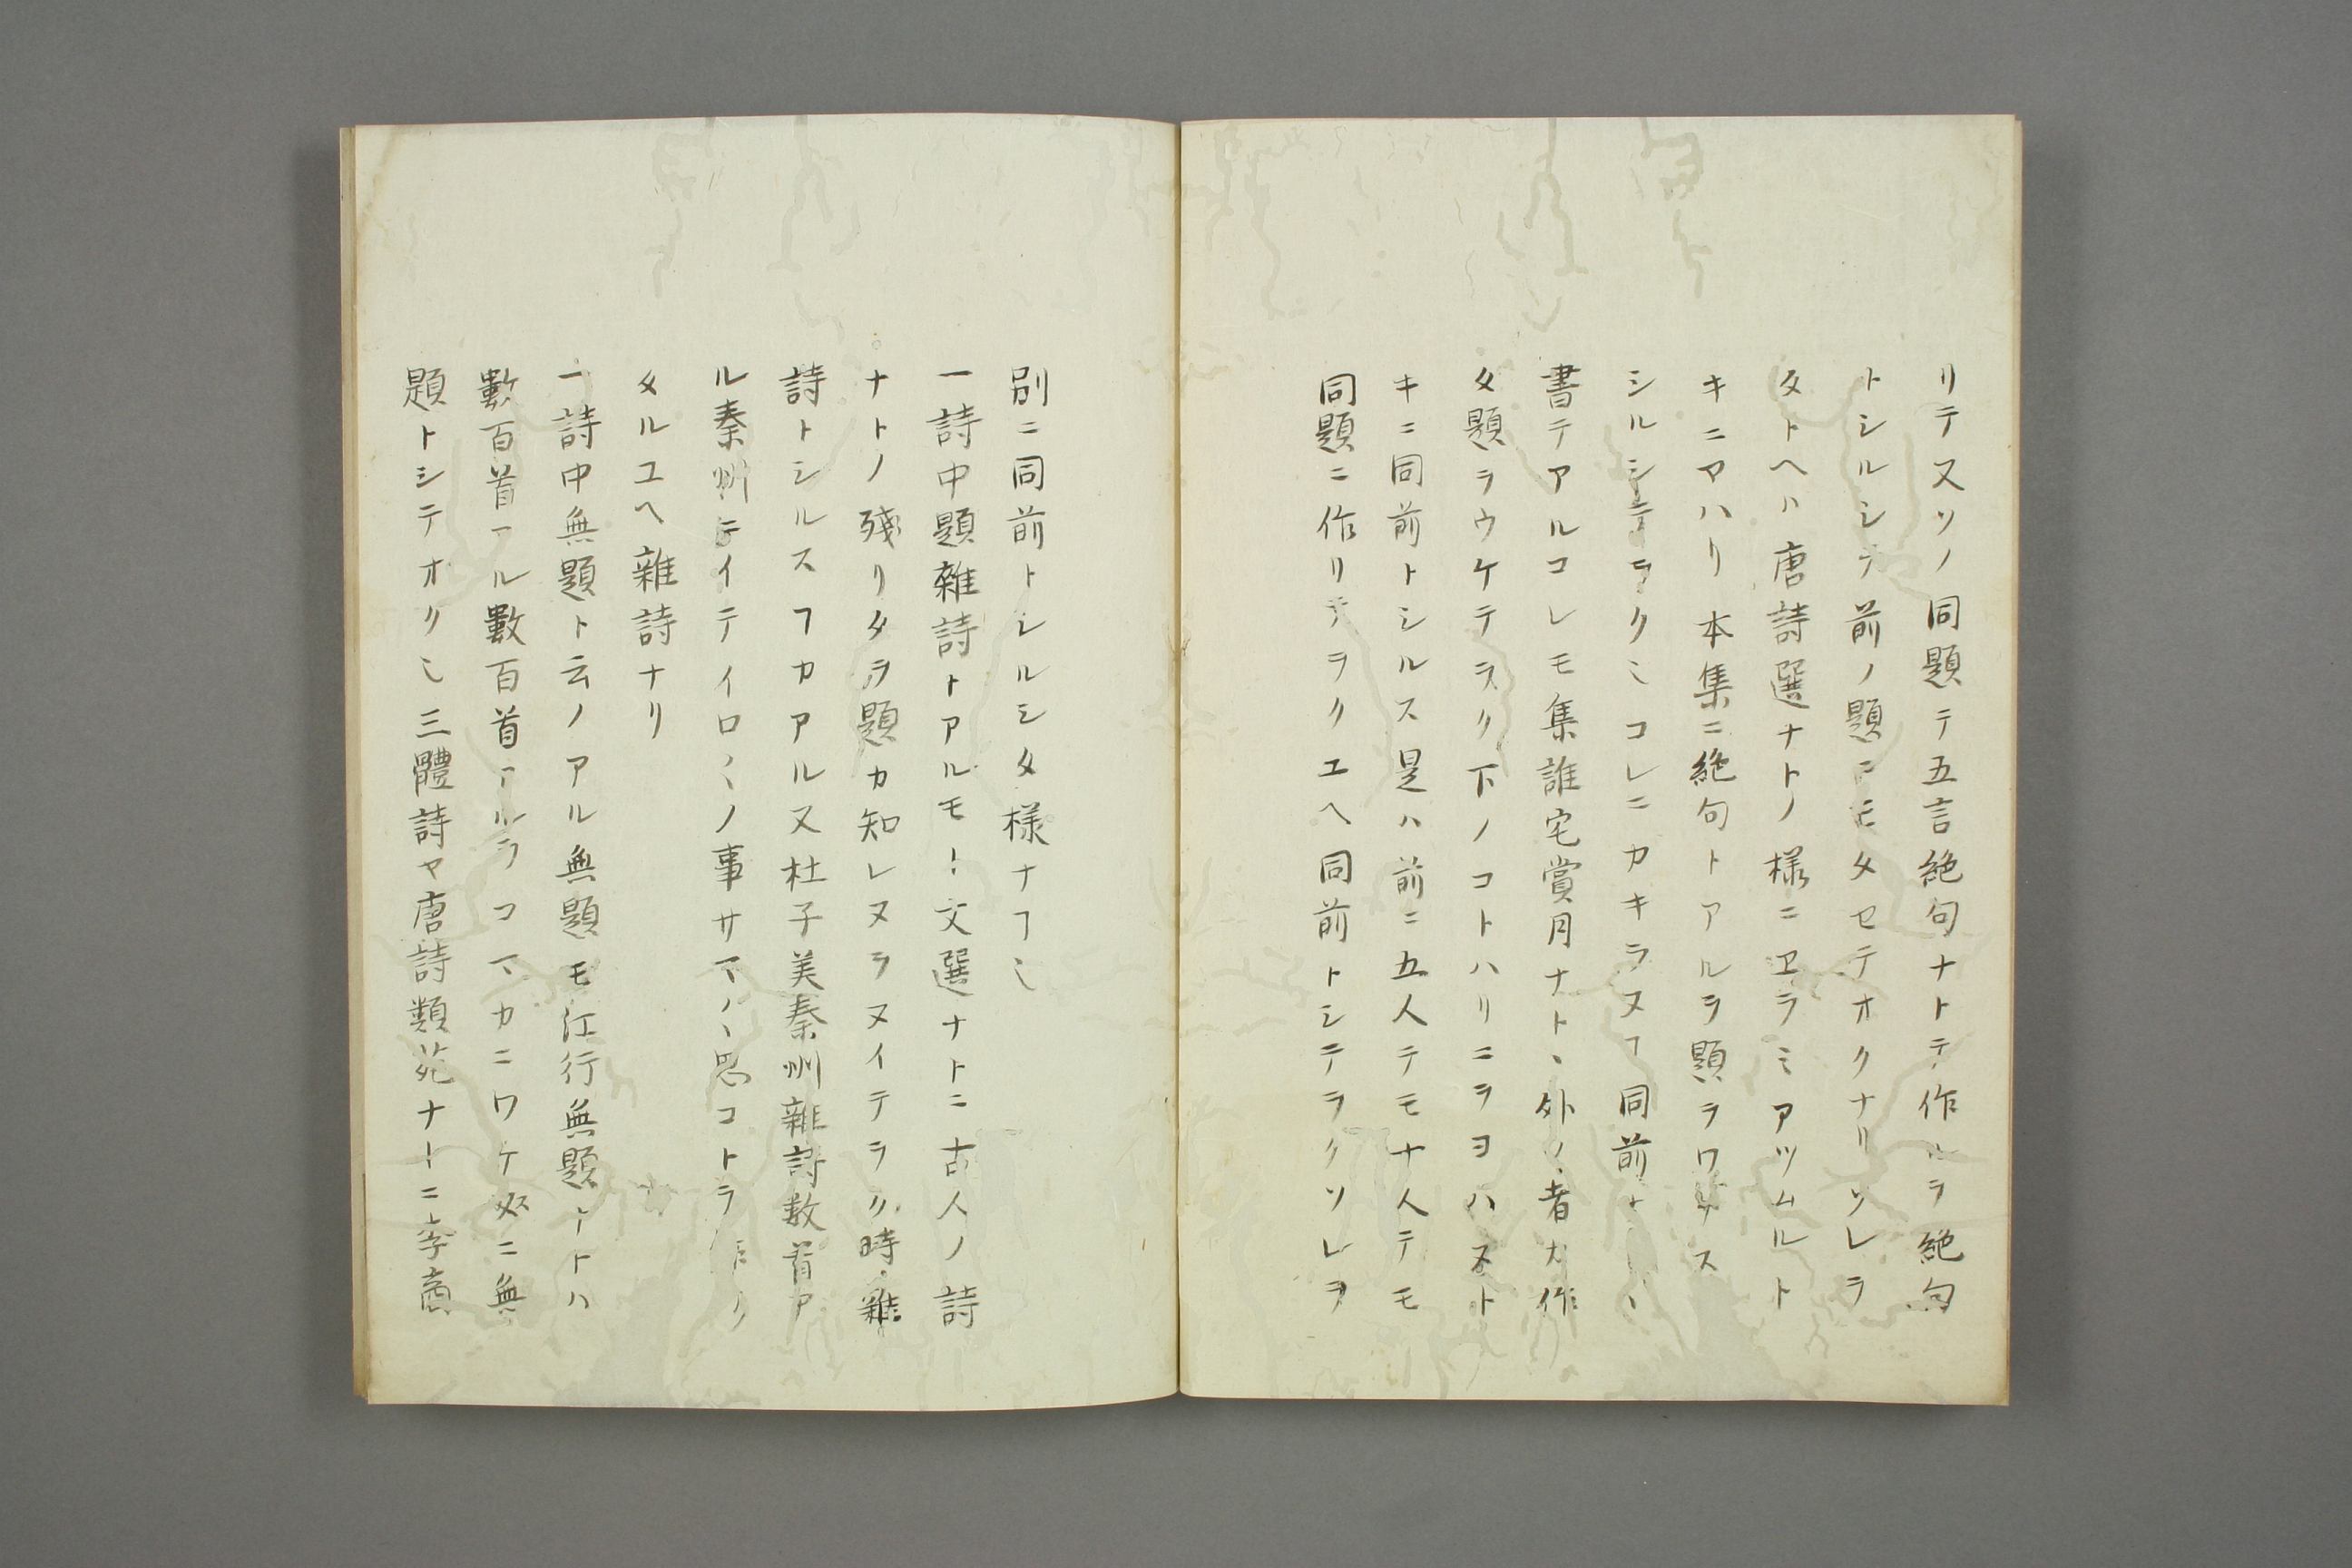 リテ又ソノ同題テ五言絶句ナトテ作ルヲ絶句
トシルシテ前ノ題ニモタセテオクナリソレヲ
タトヘハ唐詩選ナトノ様ニヱラミアツムルト
キニマハリ本集ニ絶句トアルヲ題ヲワサス
シルシテヲクミコレニカキラヌヿ同前
書テアルコレモ集誰宅賞月ナトヽ外ノ者カ作
タ題ヲウケテヲク下ノコトハリニヲヨハヌト
キニ同前トシルス是ハ前ニ五人テモ十人テモ
同題ニ作リテヲクユヘ同前トシテヲクソレヲ
別ニ同前トシルシタ様ナヿミ
一詩中題雜詩トアルモー文選ナトニ古人ノ詩
ナトノ殘リタヲ題カ知レヌヲヌイテヲク時雜
詩トシルスヿカアル又杜子美秦州雜詩数首ア
ル秦州テイテイロ〻ノ事サマ〻思コトヲ作
タルユヘ雜詩ナリ
一詩中無題ト云ノアル無題モ江行無題ートハ
數百首アル數百首アルヲコマカニワケヌニ無
題トシテオクミ三體詩ヤ唐詩類苑ナーニ李商